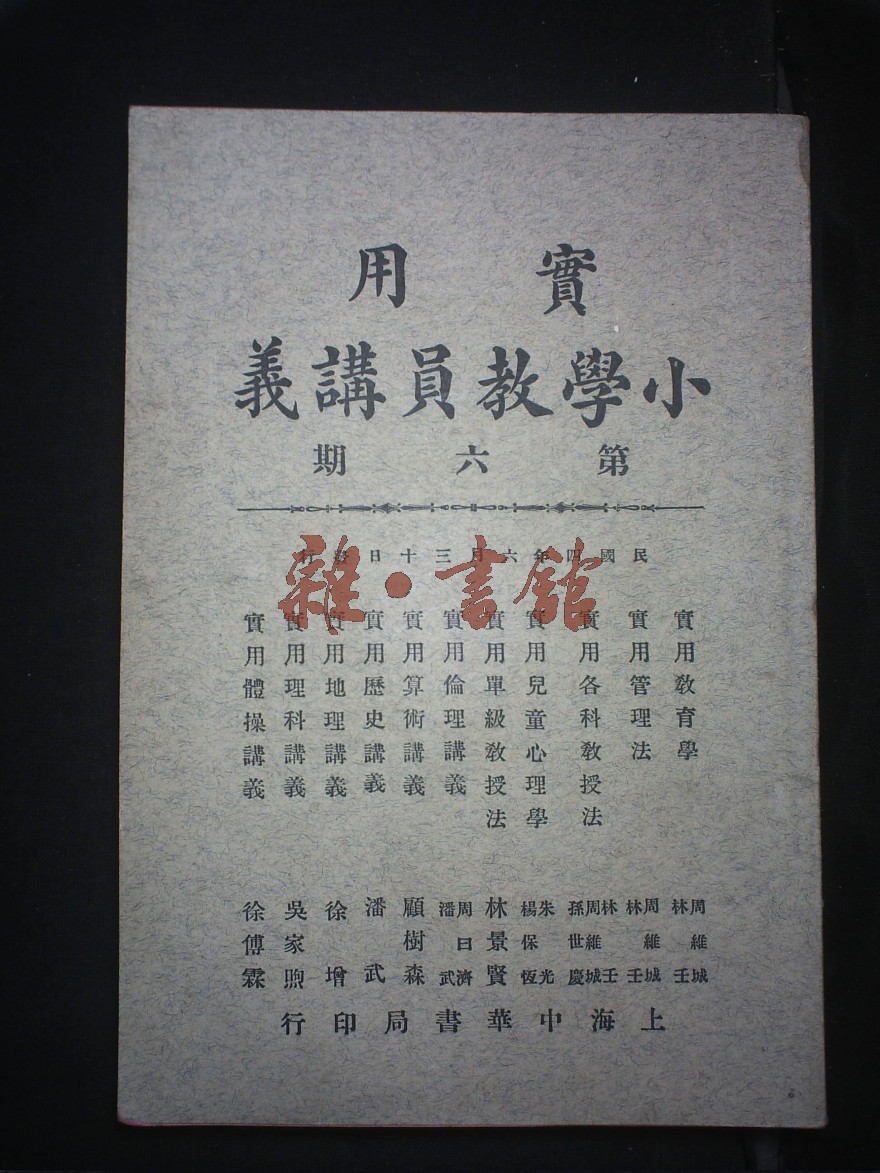 實用
小學教員講義
第六期
民國四年六月三十日發行
雜·書館
實用教育學
實用管理法
實用各科教授法
實用兒童心理學
實用單級教授法
實用倫理講義
實用算術講義
實用歷史講義
實用地理講義
實用理科講義
實用體操講義
周維城 林壬
周維城 林壬
林壬 周維城 孫世慶
朱光 楊保恆
林景賢
周日濟 潘武
顧樹森
潘武
徐增
吳家煦
徐傅霖
上海中華書局印行